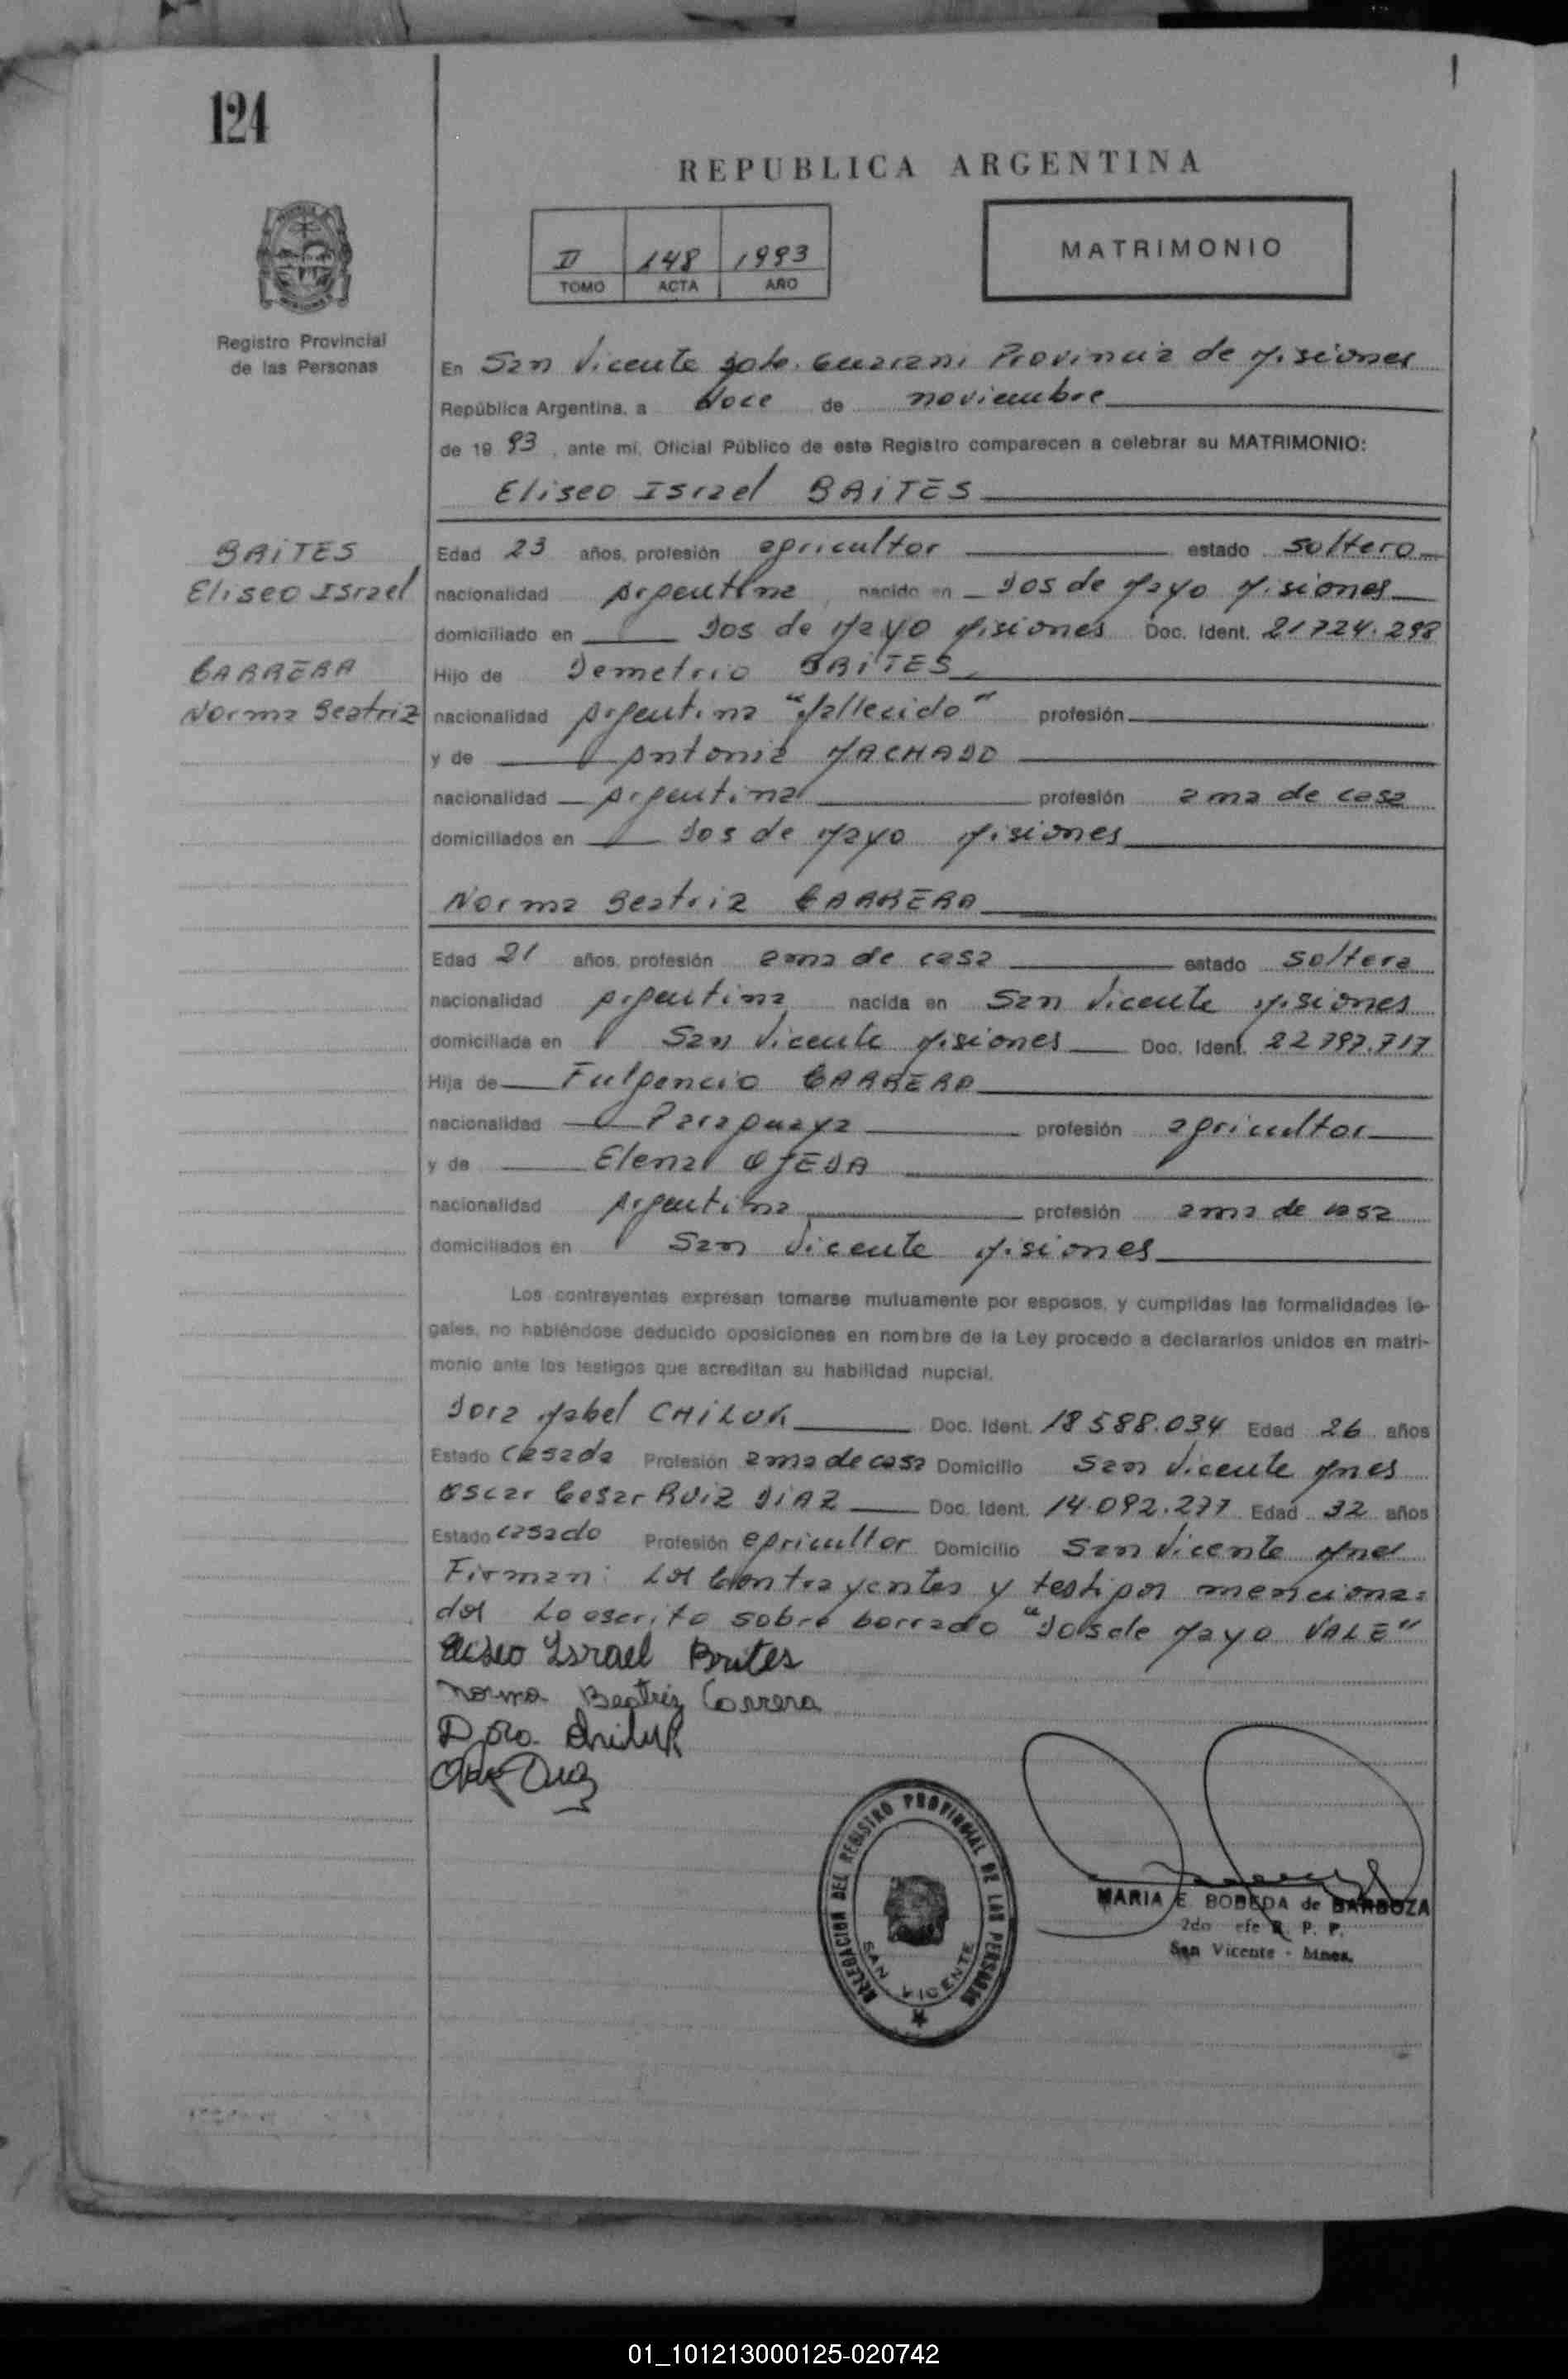 124
REPUBLICA ARGENTINA
II 148 1993
TOMO ACTA AÑO
MATRIMONIO
Registro Provincial
de las Personas
En San Vicente Dpto. Guaraní Provincia de Misiones
República Argentina, a doce de noviembre
de 19 93, ante mí, Oficial Público de este Registro comparecen a celebrar su MATRIMONIO:
Eliseo Israel BRITES
BRITES
Eliseo Israel
CARRERA
Norma Beatriz
Edad 23 años, profesión agricultor estado soltero
nacionalidad Argentina, nacido en Dos de Mayo Misiones
domiciliado en Dos de Mayo Misiones Doc. Ident. 21724.298
Hijo de Demetrio BRITES
nacionalidad Argentina "fallecido" profesión
y de Antonia MACHADO
nacionalidad Argentina profesión ama de casa
domiciliados en Dos de Mayo Misiones
Norma Beatriz CARRERA
Edad 21 años, profesión ama de casa estado soltera
nacionalidad Argentina nacida en San Vicente Misiones
domiciliada en San Vicente Misiones Doc. Ident. 22797.717
Hija de Fulgencio CARRERA
nacionalidad Paraguaya profesión agricultor
y de Elena OJEDA
nacionalidad Argentina profesión ama de casa
domiciliados en San Vicente Misiones
Los contrayentes expresan tomarse mutuamente por esposos, y cumplidas las formalidades le-
gales, no habiéndose deducido oposiciones en nombre de la Ley procedo a declararlos unidos en matri-
monio ante los testigos que acreditan su habilidad nupcial.
Dora Mabel CHILUK Doc. Ident. 18588.034 Edad 26 años
Estado casada Profesión ama de casa Domicilio San Vicente Mnes
Oscar Cesar RUIZ DIAZ Doc. Ident. 14.092.277 Edad 32 años
Estado casado Profesión agricultor Domicilio San Vicente Mnes
Firman: Los Contrayentes y testigos menciona=
dos Lo escrito sobre borrado "Dos de Mayo VALE"
Eliseo Israel Brites
Norma Beatriz Carrera
Dora Chiluk
DELEGACION DEL REGISTRO PROVINCIAL DE LAS PERSONAS
SAN VICENTE
MARIA E. BOBEDA de BARBOZA
2do efe R. P. P.
San Vicente - Mnes.
01_101213000125-020742